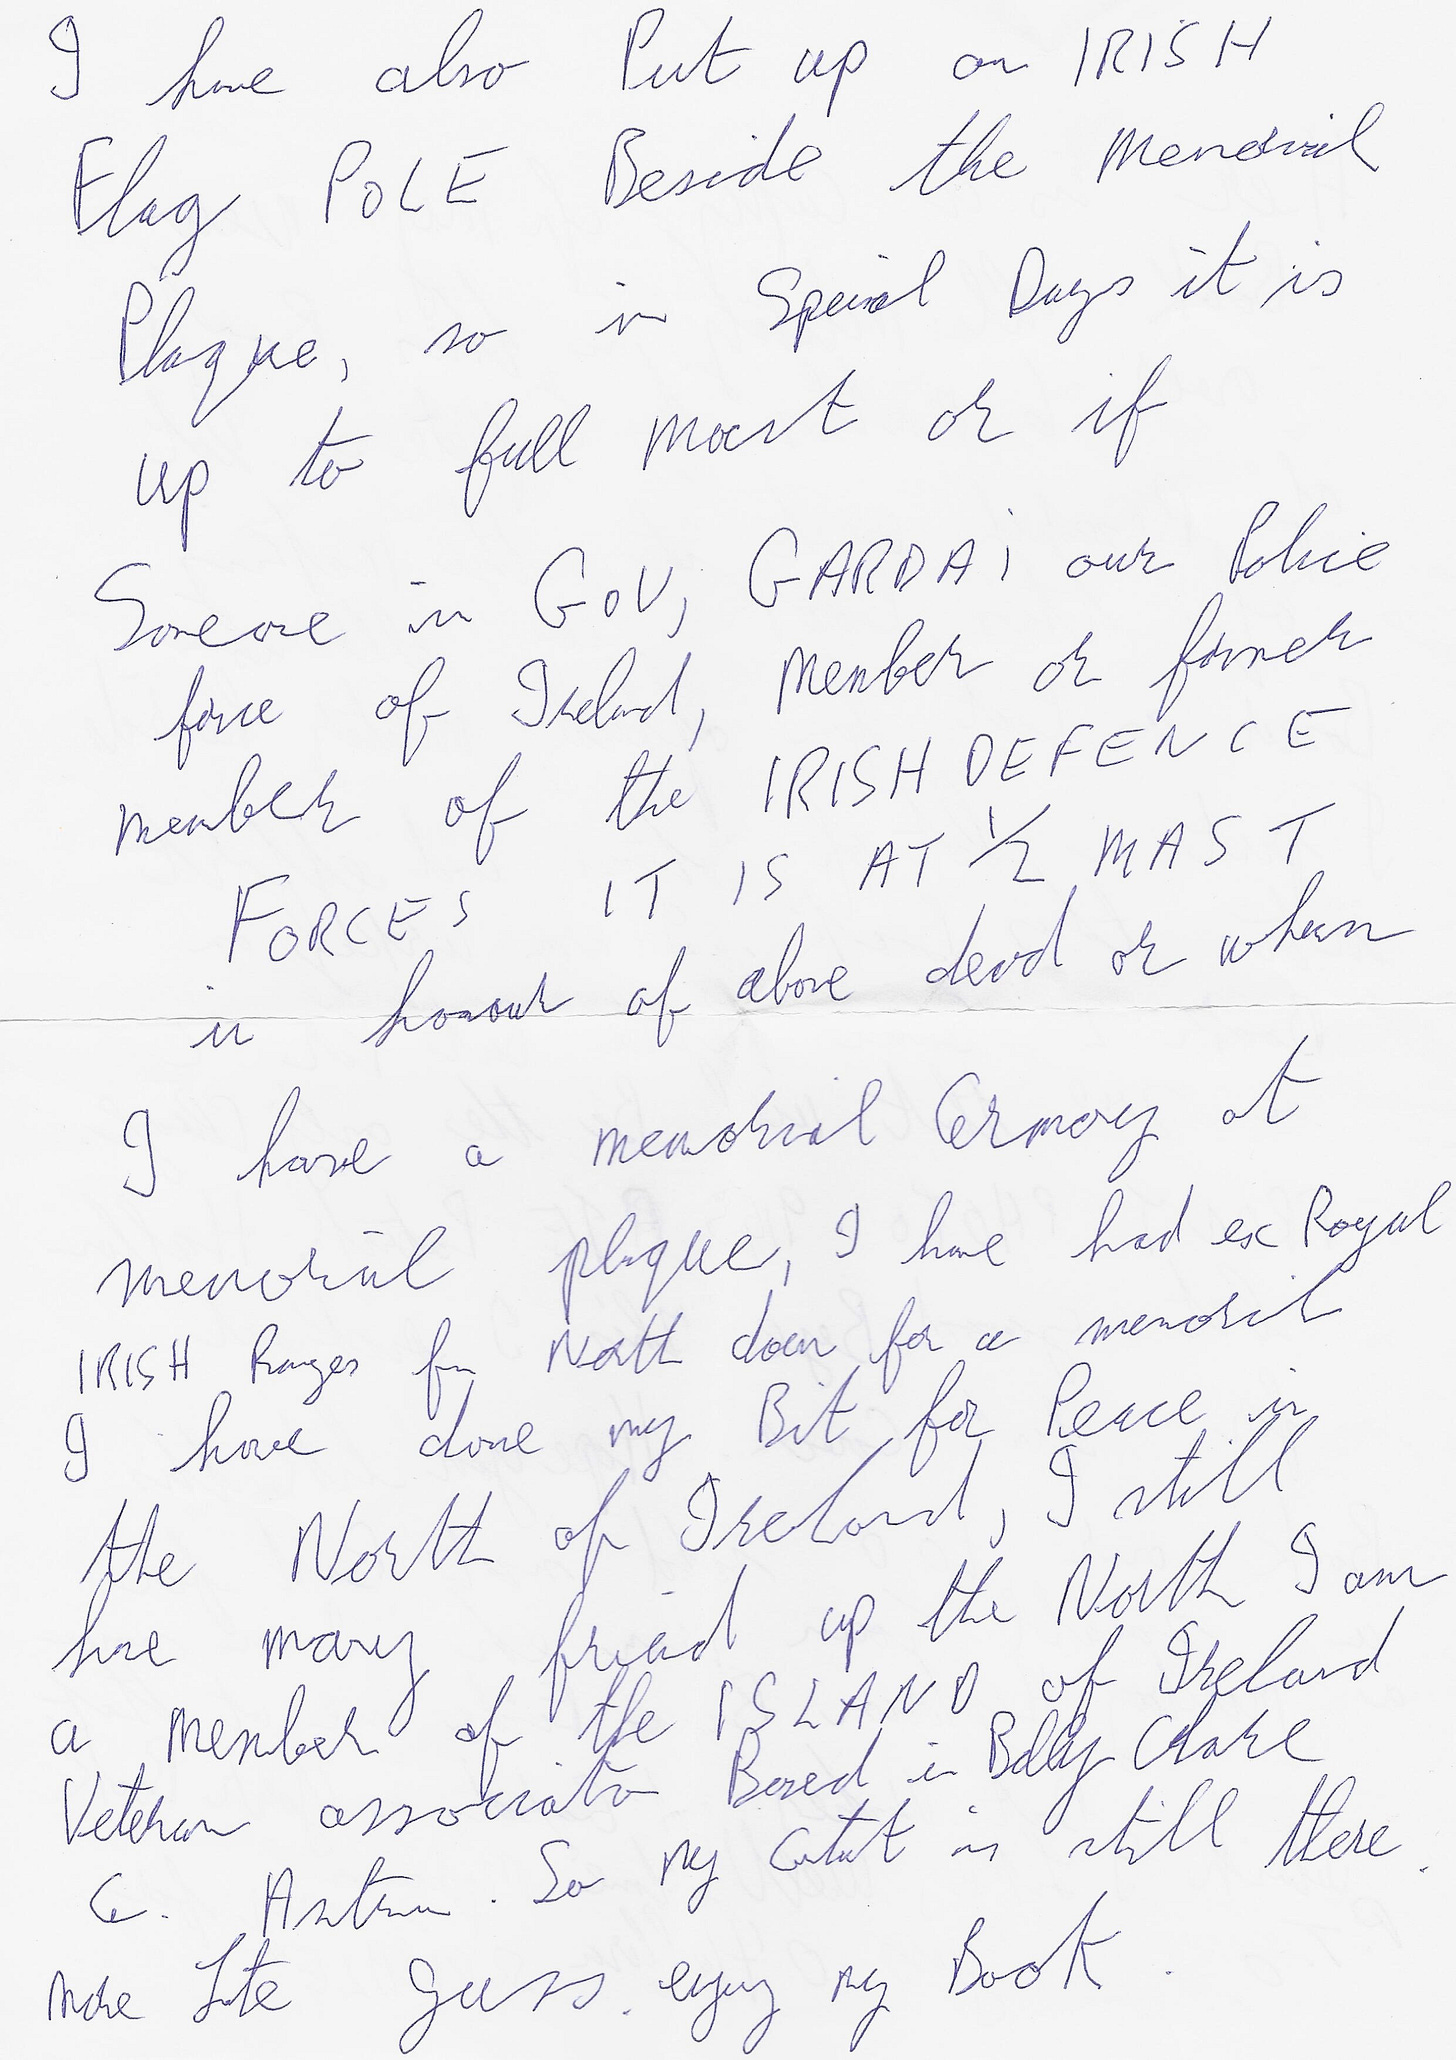 I have also Put up an IRISH
Flag POLE Beside the Memorial
Plaque, so in Special Days it is
up to full mast or if
Someone in GOV, GARDAI our Police
force of Ireland, Member or former
member of the IRISH DEFENCE
FORCES IT IS AT 1/2 MAST
in honour of above dead or when
I have a memorial Cermony at
memorial plaque, I have had ex Royal
IRISH Ranges from North down for a memorial
I have done my Bit for Peace in
the North of Ireland, I still
have many friend up the North I am
a Member of the ISLAND of Ireland
Veteran association Based in Clare
C. Antrim. So my is still there.
more Late Guess. enjoy my Book.